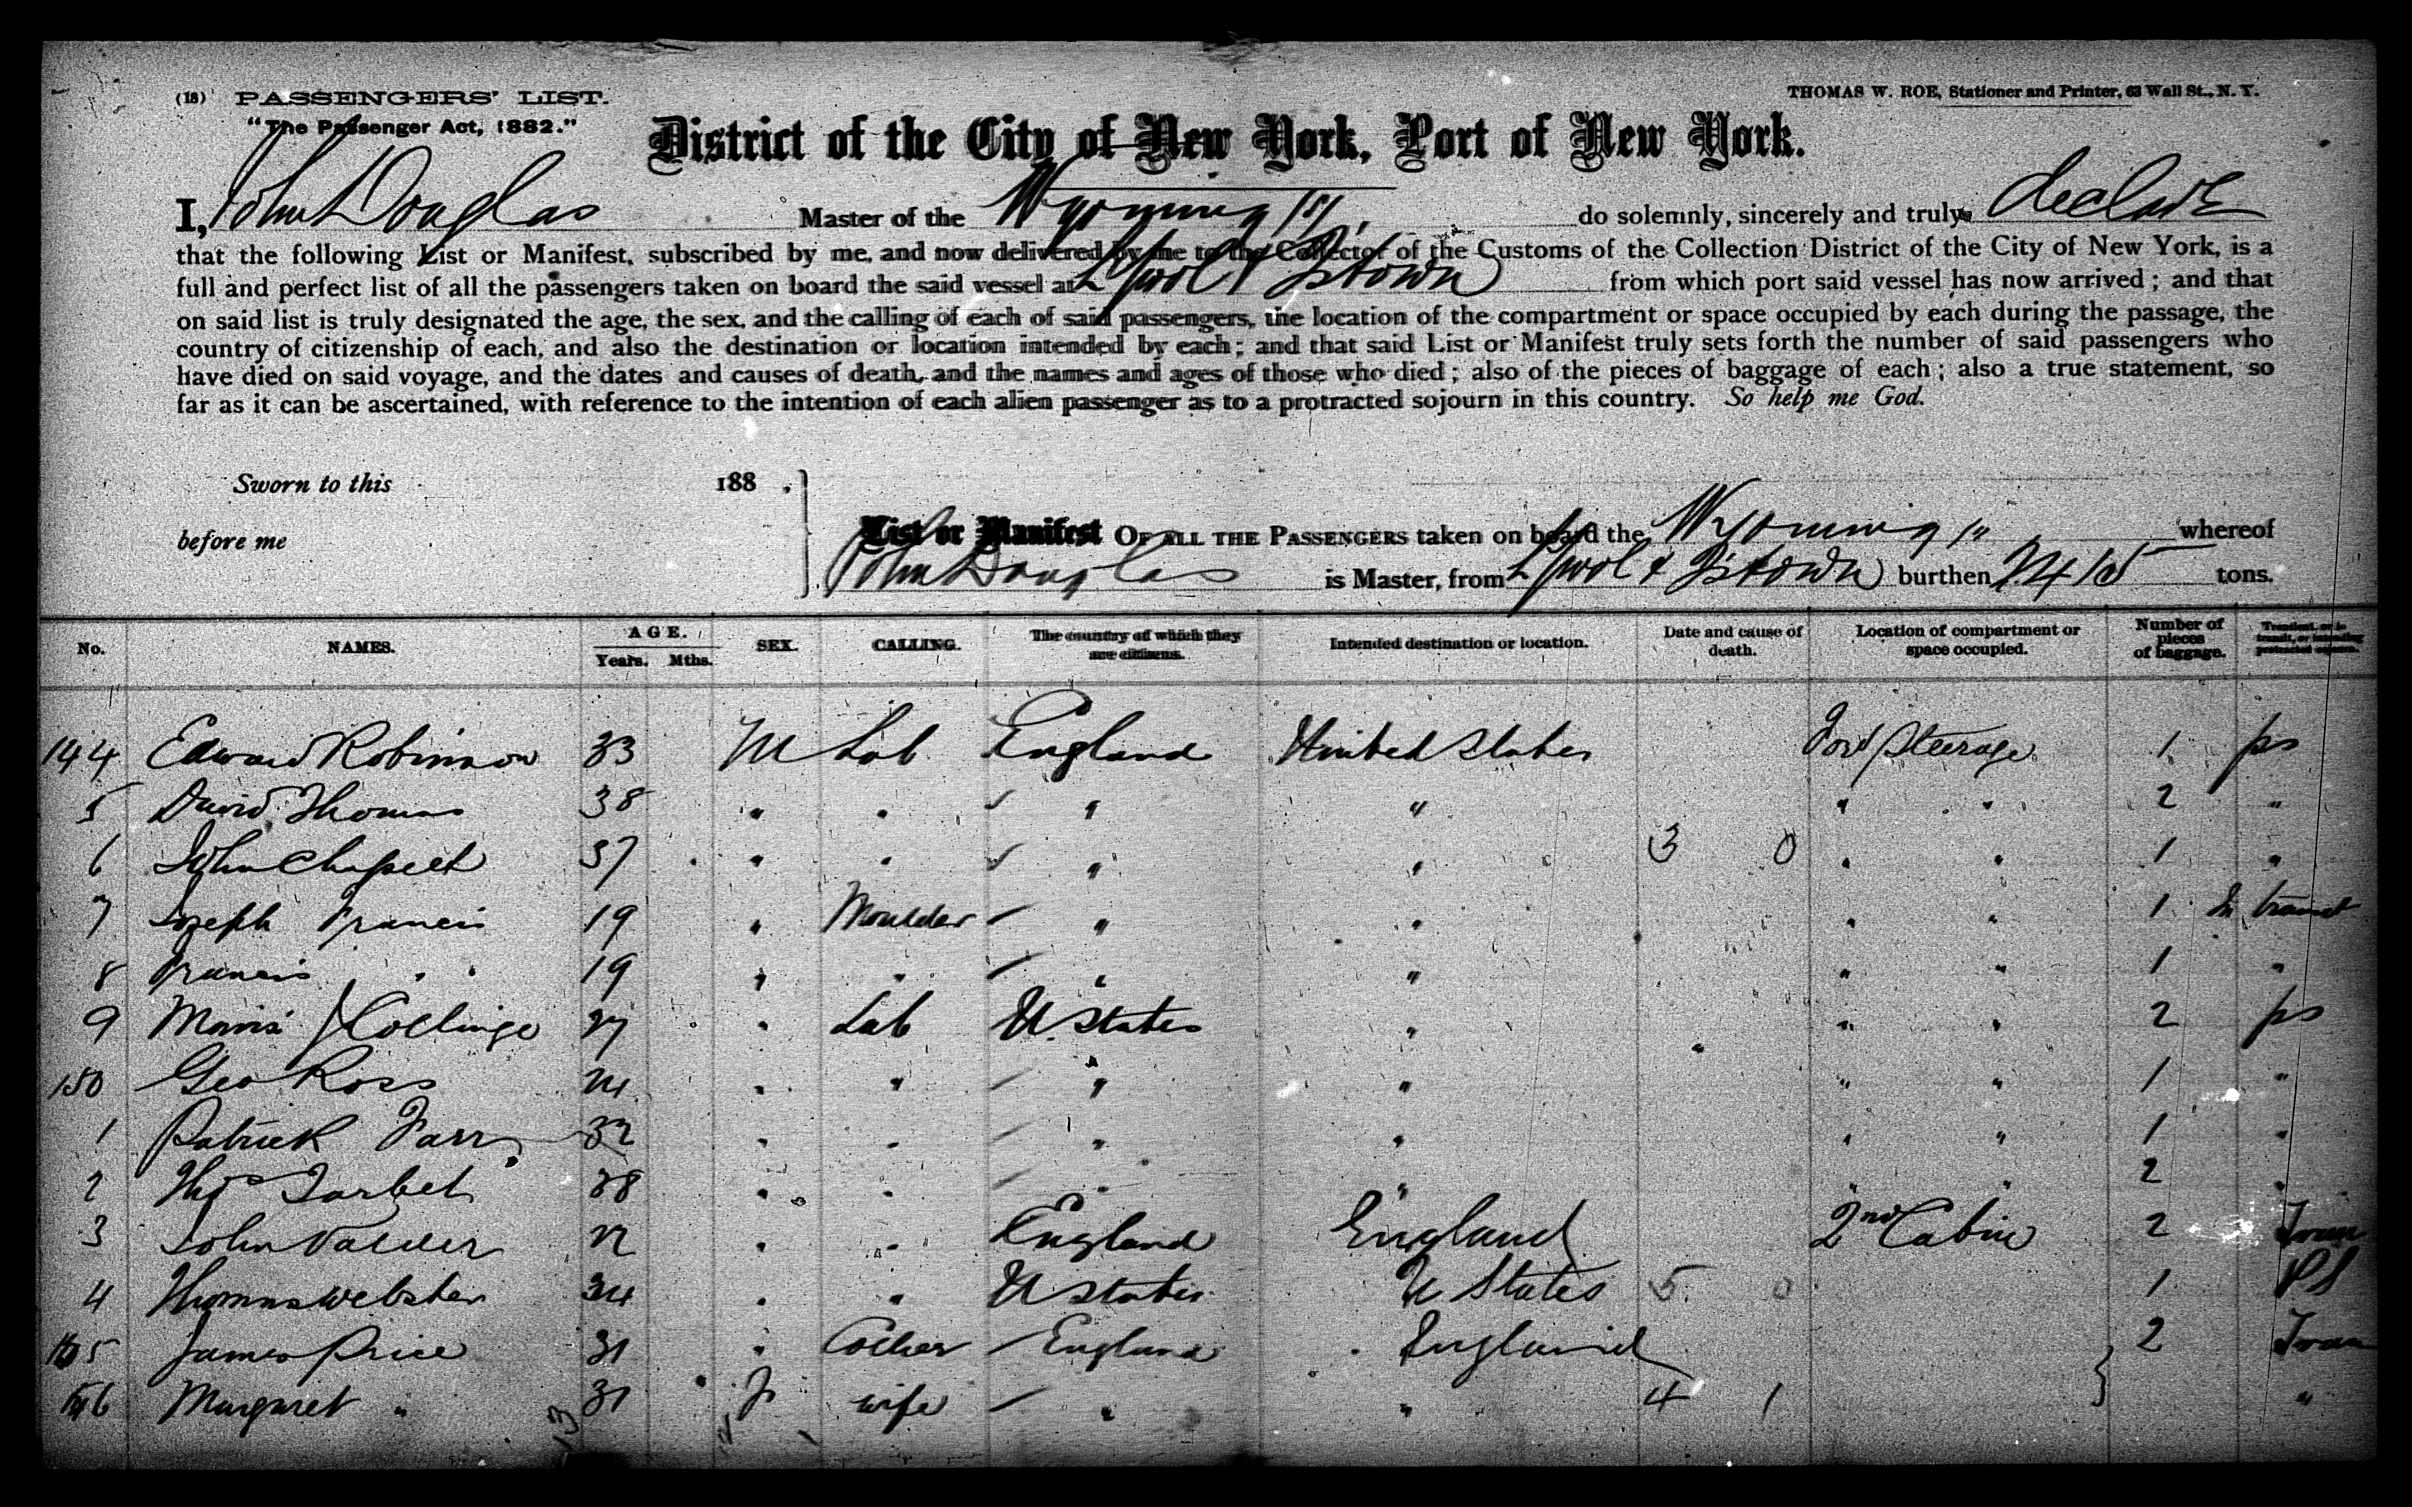 (18) PASSENGERS' LIST.
THOMAS W. ROE, Stationer and Printer, 63 Wall St., N. Y.
"The Passenger Act, 1882."
District of the City of New York, Port of New York.
I, John Douglas Master of the Wyoming do solemnly, sincerely and truly declare
that the following List or Manifest, subscribed by me, and now delivered by me to the Collector of the Customs of the Collection District of the City of New York, is a
full and perfect list of all the passengers taken on board the said vessel at L'pool & Q'stown from which port said vessel has now arrived; and that
on said list is truly designated the age, the sex, and the calling of each of said passengers, the location of the compartment or space occupied by each during the passage, the
country of citizenship of each, and also the destination or location intended by each; and that said List or Manifest truly sets forth the number of said passengers who
have died on said voyage, and the dates and causes of death, and the names and ages of those who died; also of the pieces of baggage of each; also a true statement, so
far as it can be ascertained, with reference to the intention of each alien passenger as to a protracted sojourn in this country. So help me God.
Sworn to this 188 .
before me
List or Manifest OF ALL THE PASSENGERS taken on board the Wyoming whereof
John Douglas is Master, from L'pool & Q'stown burthen 2415 tons.
No. NAMES. AGE. Years. Mths. SEX. CALLING. The country of which they are citizens. Intended destination or location. Date and cause of death. Location of compartment or space occupied. Number of pieces of baggage. Transient, or in transit, or intending protracted sojourn.
144 Edward Robinson 33 M Lab England United States For'd Steerage 1 ps
5 David Thomas 38 " " " " " " 2 "
6 John 37 " " " " 3 0 " " 1 "
7 Joseph Francis 19 " Moulder " " " " 1 In transit
8 Francis " " 19 " " " " " " 1 "
9 Morris Collinge 27 " Lab U. States " " " 2 ps
150 Geo Ross 24 " " " " " " 1 "
1 Patrick Farr 32 " " " " " " 1 "
2 Thos Tarbet 28 " " " " " " 2 "
3 John 22 " " England England 2nd Cabin 2 Tran
4 Thomas Webster 34 " " U States U States 5 0 1 PS
5 James Price 31 " Collier England England 2 Tran
6 Margaret " 31 F wife " " 4 1 "
13 12 1